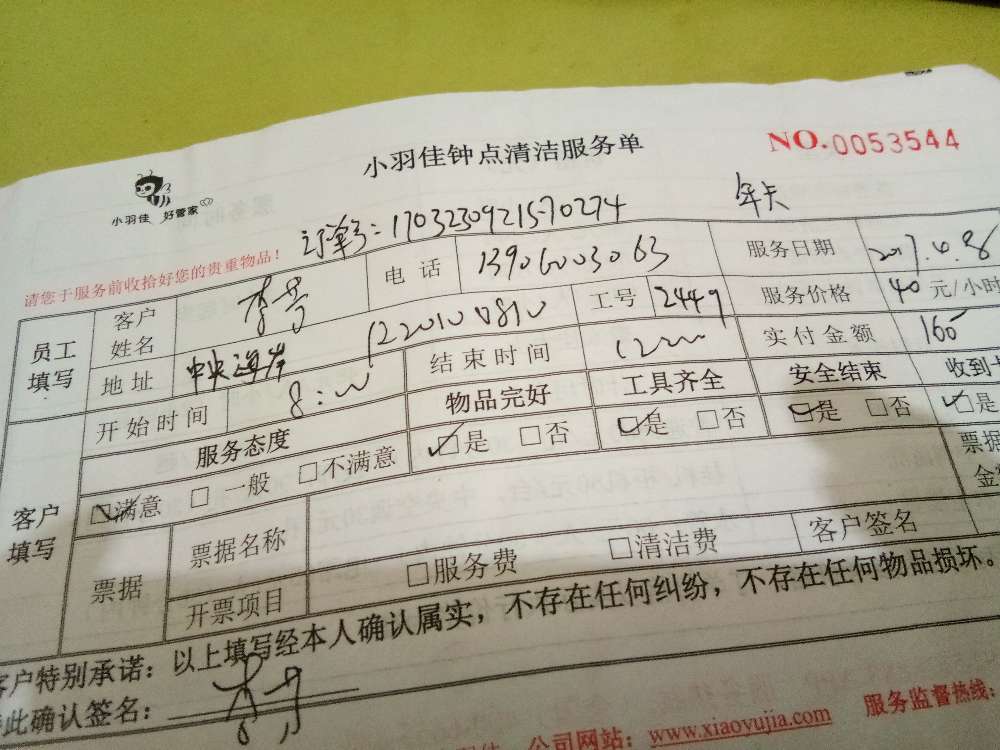 小羽佳钟点清洁服务单
NO.0053544
小羽佳 好管家
订单号：1703230921570274 年卡
请您于服务前收拾好您的贵重物品！
员工填写 客户姓名 电话 13906003063 服务日期
地址 中央海岸 工号 2449 服务价格 40 元/小时
开始时间 8:00 结束时间 12:00 实付金额 160
服务态度 物品完好 工具齐全 安全结束 收到
客户填写 □满意 □一般 □不满意 □是 □否 □是 □否 □是 □否 □是
票据 票据名称 票据
开票项目 □服务费 □清洁费 客户签名
客户特别承诺：以上填写经本人确认属实，不存在任何纠纷，不存在任何物品损坏。
此确认签名：
公司网站：www.xiaoyujia.com 服务监督热线：